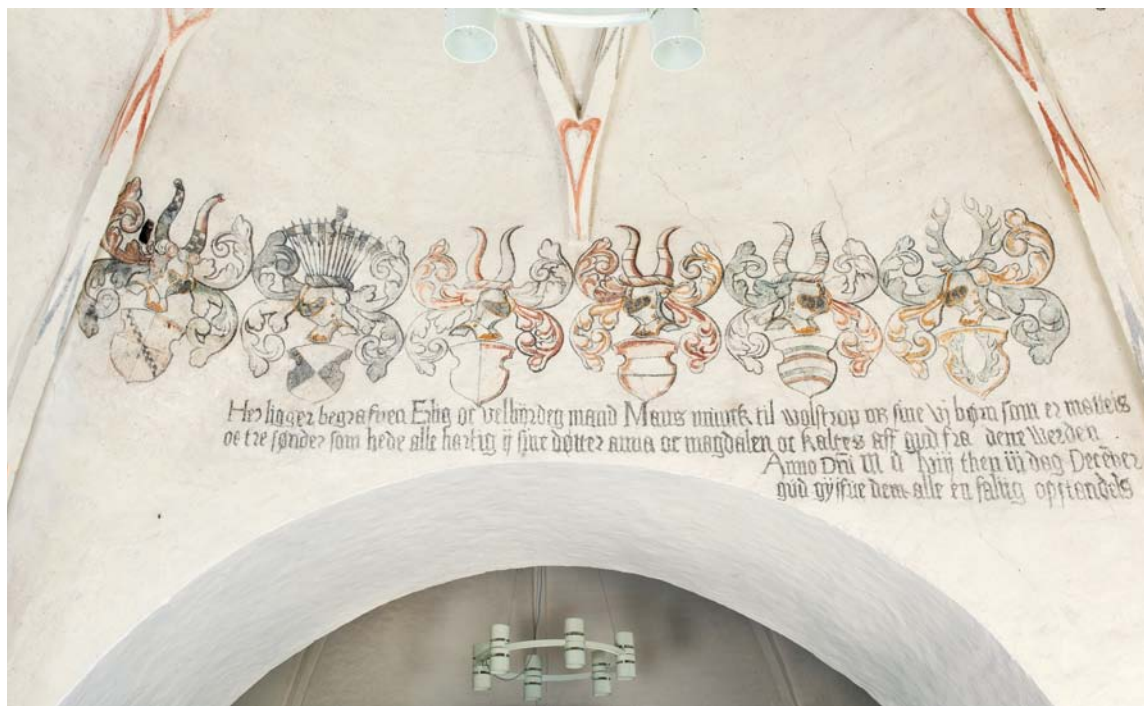 Her ligger begrafven Erlig oc velbyrdeg mand Maus munck til wolstrop oc sine vj børn som er
oc tre sønder som hede alle hartig ij sine døtter anna oc magdalen oc kaltes aff gud fra dene Werden
Anno Dñi M d then iij dag Decēber
gud gyffue dem alle en salig opstandels